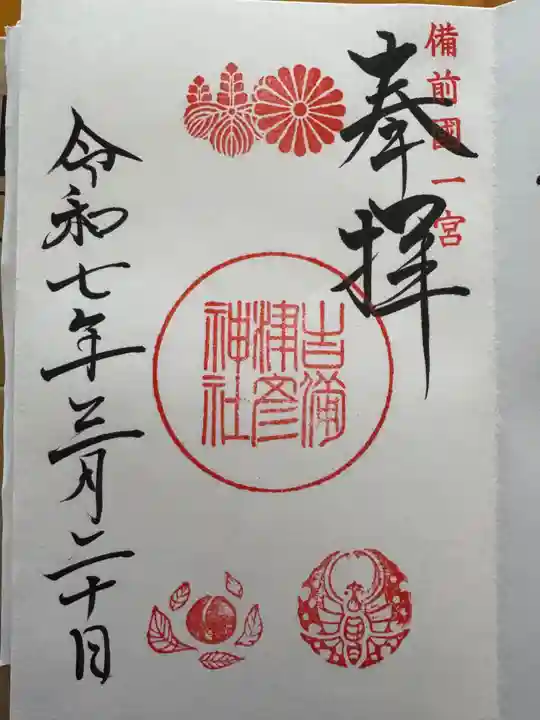 備前國一宮
奉拝
吉備
津彦
神社
令和七年三月二十日